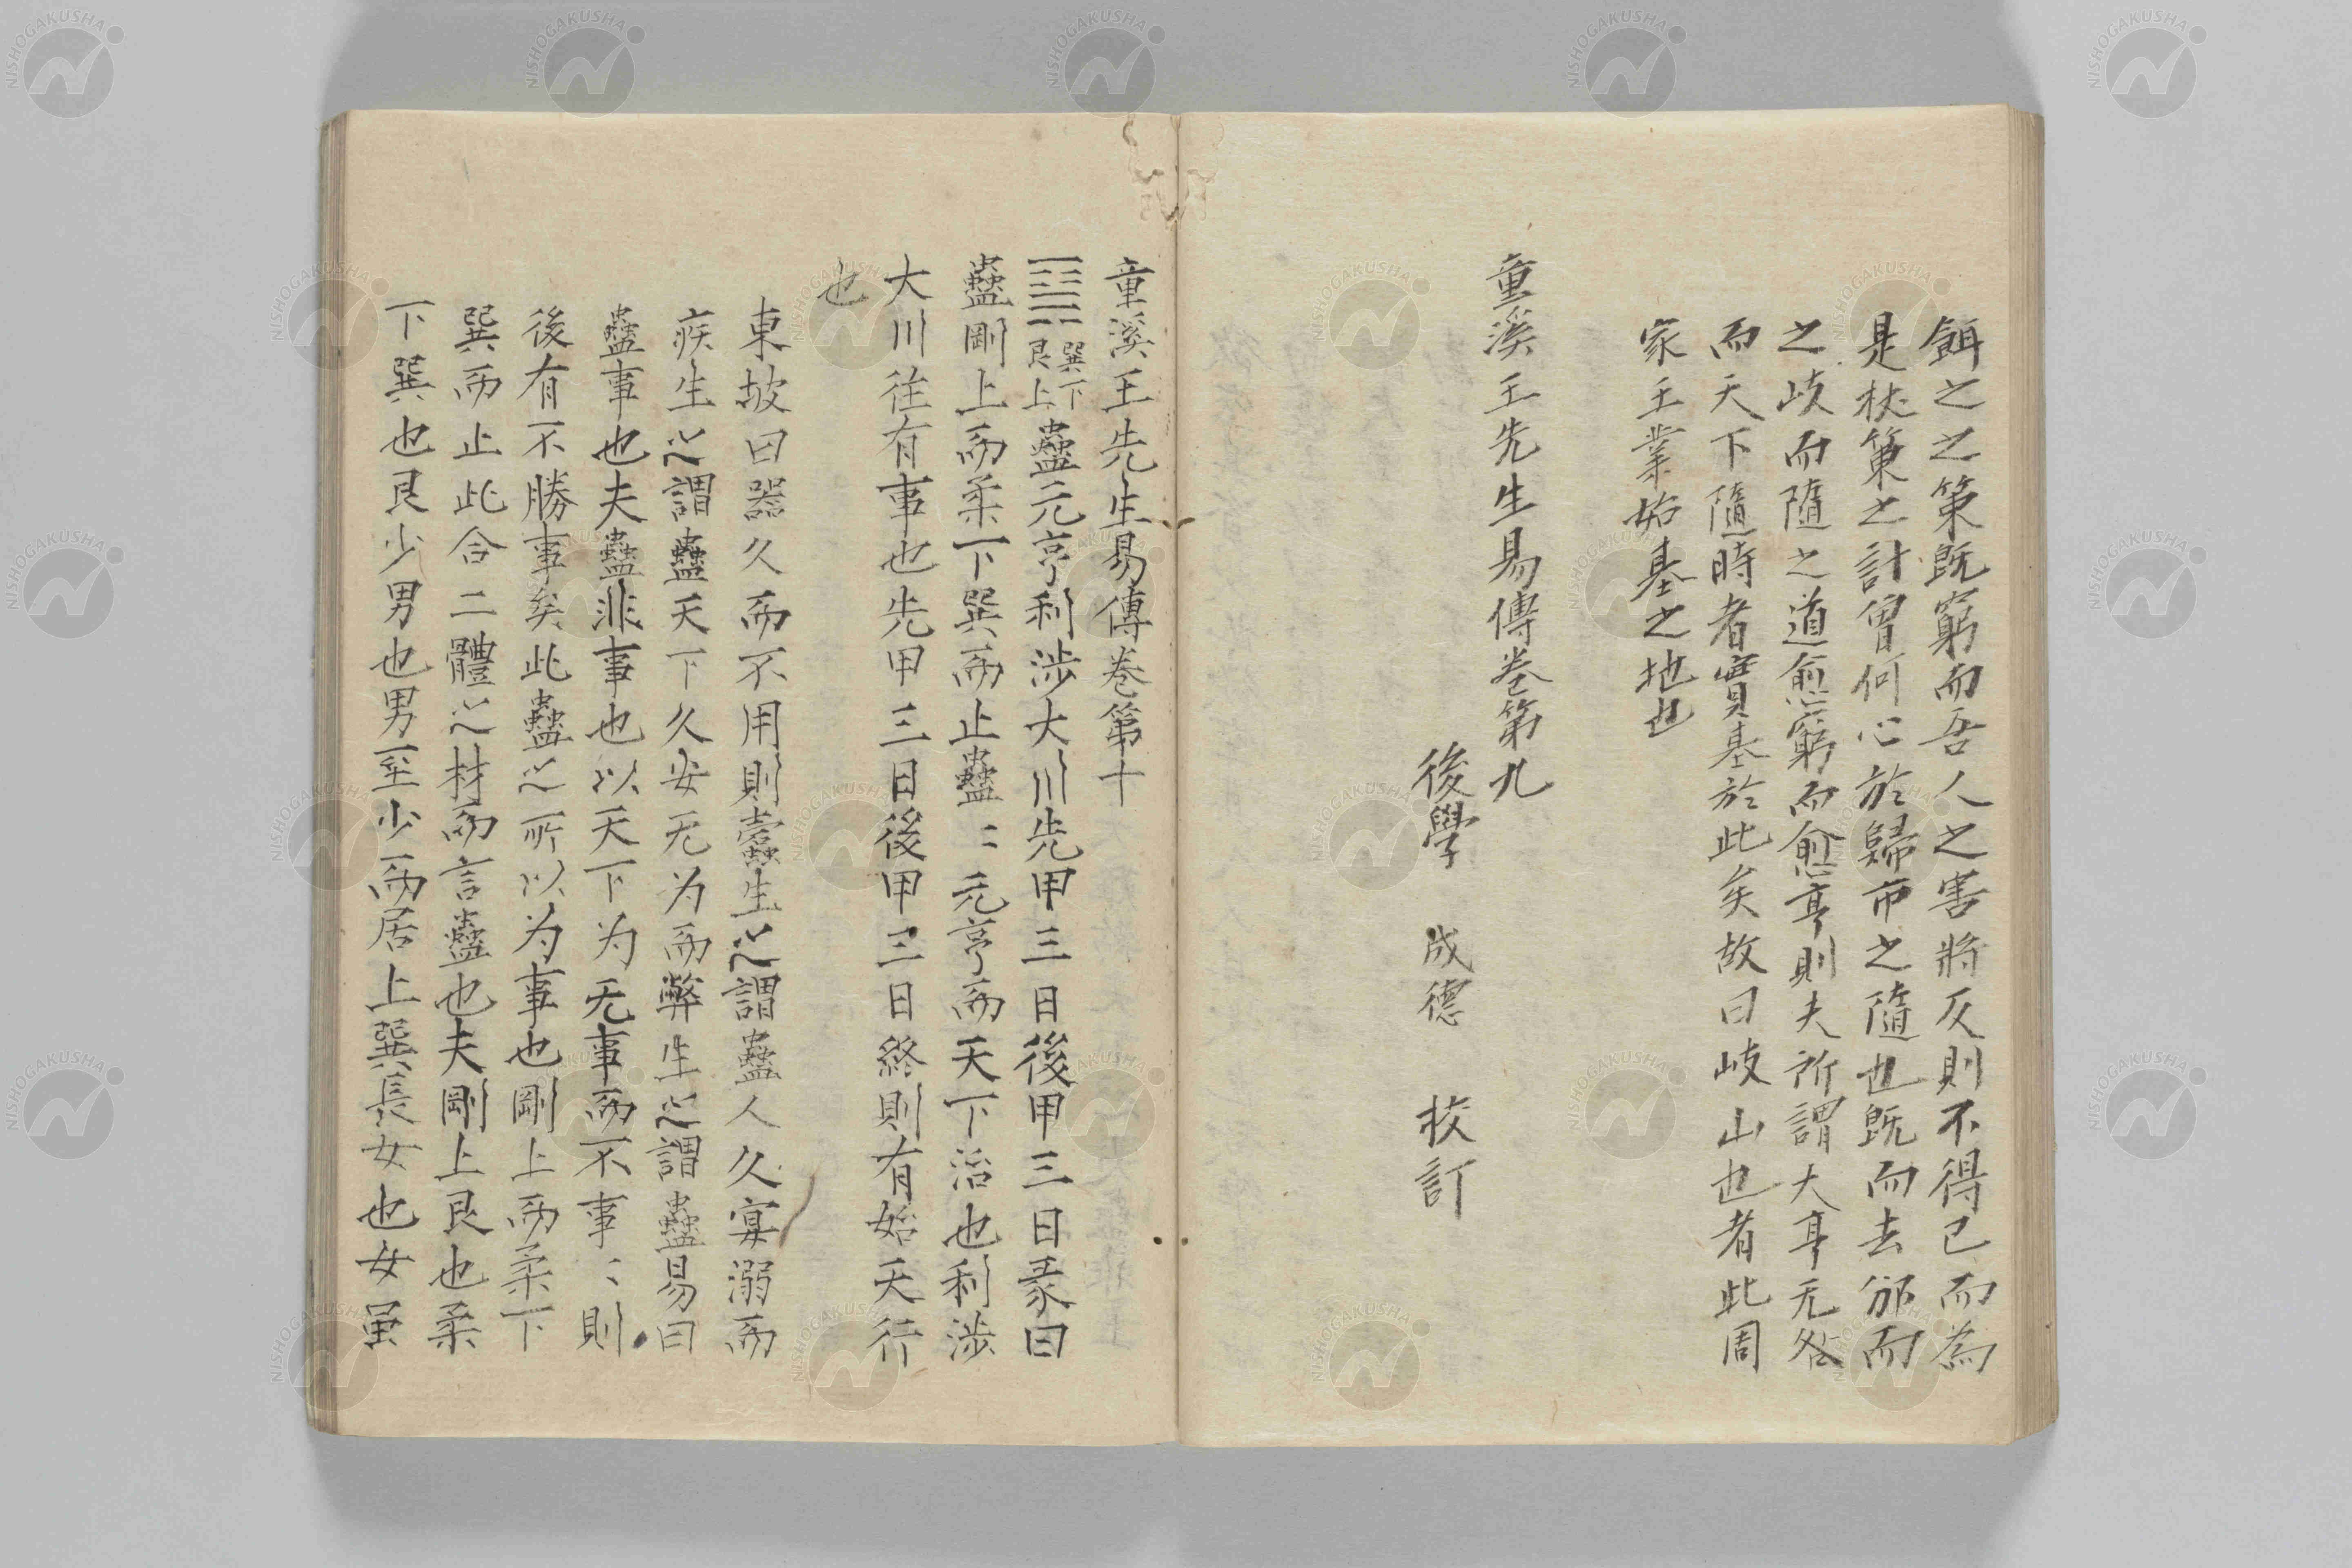 餌之之策既窮而吾人之害將及則不得已而為
是杖策之計曾何心於歸市之隨也既而去邠而
之岐而隨之道愈窮而愈亨則夫所謂大亨无咎
而天下隨時者實基於此矣故曰岐山也者此周
家王業始基之地也
童溪王先生易傳卷第九
後學 成德 校訂
童溪王先生易傳卷第十
䷑巽下艮上蠱元亨利涉大川先甲三日後甲三日彖曰
蠱剛上而柔下巽而止蠱〻元亨而天下治也利涉
大川往有事也先甲三日後甲三日終則有始天行
也
東坡曰器久而不用則蠹生之謂蠱人久宴溺而
疾生之謂蠱天下久安无为而弊生之謂蠱易曰
蠱事也夫蠱非事也以天下为无事而不事〻則
後有不勝事矣此蠱之所以为事也剛上而柔下
巽而止此合二體之材而言蠱也夫剛上艮也柔
下巽也艮少男也男至少而居上巽長女也女虽
NISHOGAKUSHA